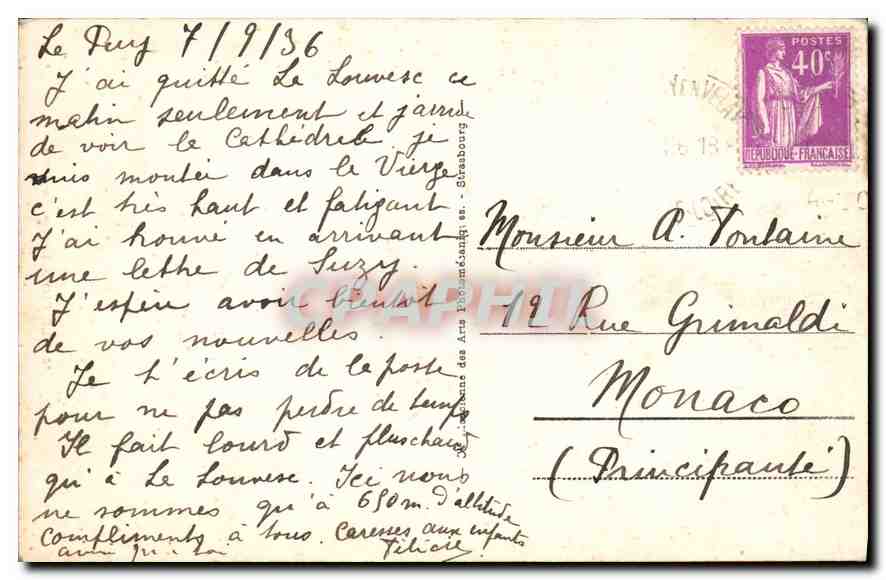 Le Puy 7/9/36
J'ai quitté Le Louvesc ce
matin seulement et j'arrive
de voir la Cathédrale je
suis montée dans la Vierge
c'est très haut et fatigant
J'ai trouvé en arrivant
une lettre de Suzy.
J'espère avoir bientôt
de vos nouvelles.
Je t'écris de la poste
pour ne pas perdre de temps
Il fait lourd et plus chaud
qu'à Le Louvesc. Ici nous
ne sommes qu'à 650 m. d'altitude
compliments à tous. Caresses aux enfants
Félicie
des Arts Photomécaniques. - Strasbourg
POSTES
40c
REPUBLIQUE-FRANÇAISE
Monsieur A. Fontaine
12 Rue Grimaldi
Monaco
(Principauté)
CPAPHIL